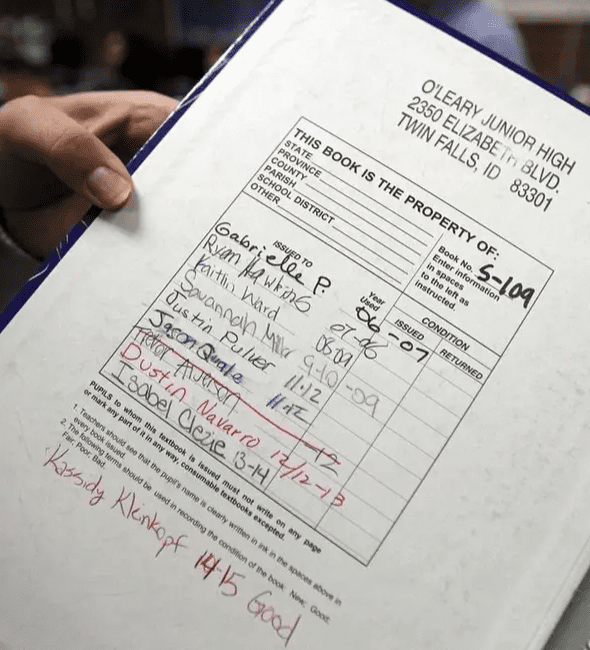 O'LEARY JUNIOR HIGH
2350 ELIZABETH BLVD.
TWIN FALLS, ID 83301
THIS BOOK IS THE PROPERTY OF:
STATE
PROVINCE
COUNTY
PARISH
SCHOOL DISTRICT
OTHER
Book No. S-109
Enter information
in spaces
to the left as
instructed.
ISSUED TO
Year Used
CONDITION
ISSUED
RETURNED
Gabrielle P. 06-07
Ryan Hawkins 07-08
Kaitlin Ward 08 09
Savannah Miller 9-10-09
Justin Pulver 11.12
Jason 11.12
12
Dustin Navarro 12/12-13
Isabel 13-14
PUPILS to whom this textbook is issued must not write on any page
or mark any part of it in any way, consumable textbooks excepted.
1. Teachers should see that the pupil's name is clearly written in ink in the spaces above in
every book issued.
2. The following terms should be used in recording the condition of the book: New; Good;
Fair; Poor; Bad.
Kassidy Kleinkopf 14-15 Good